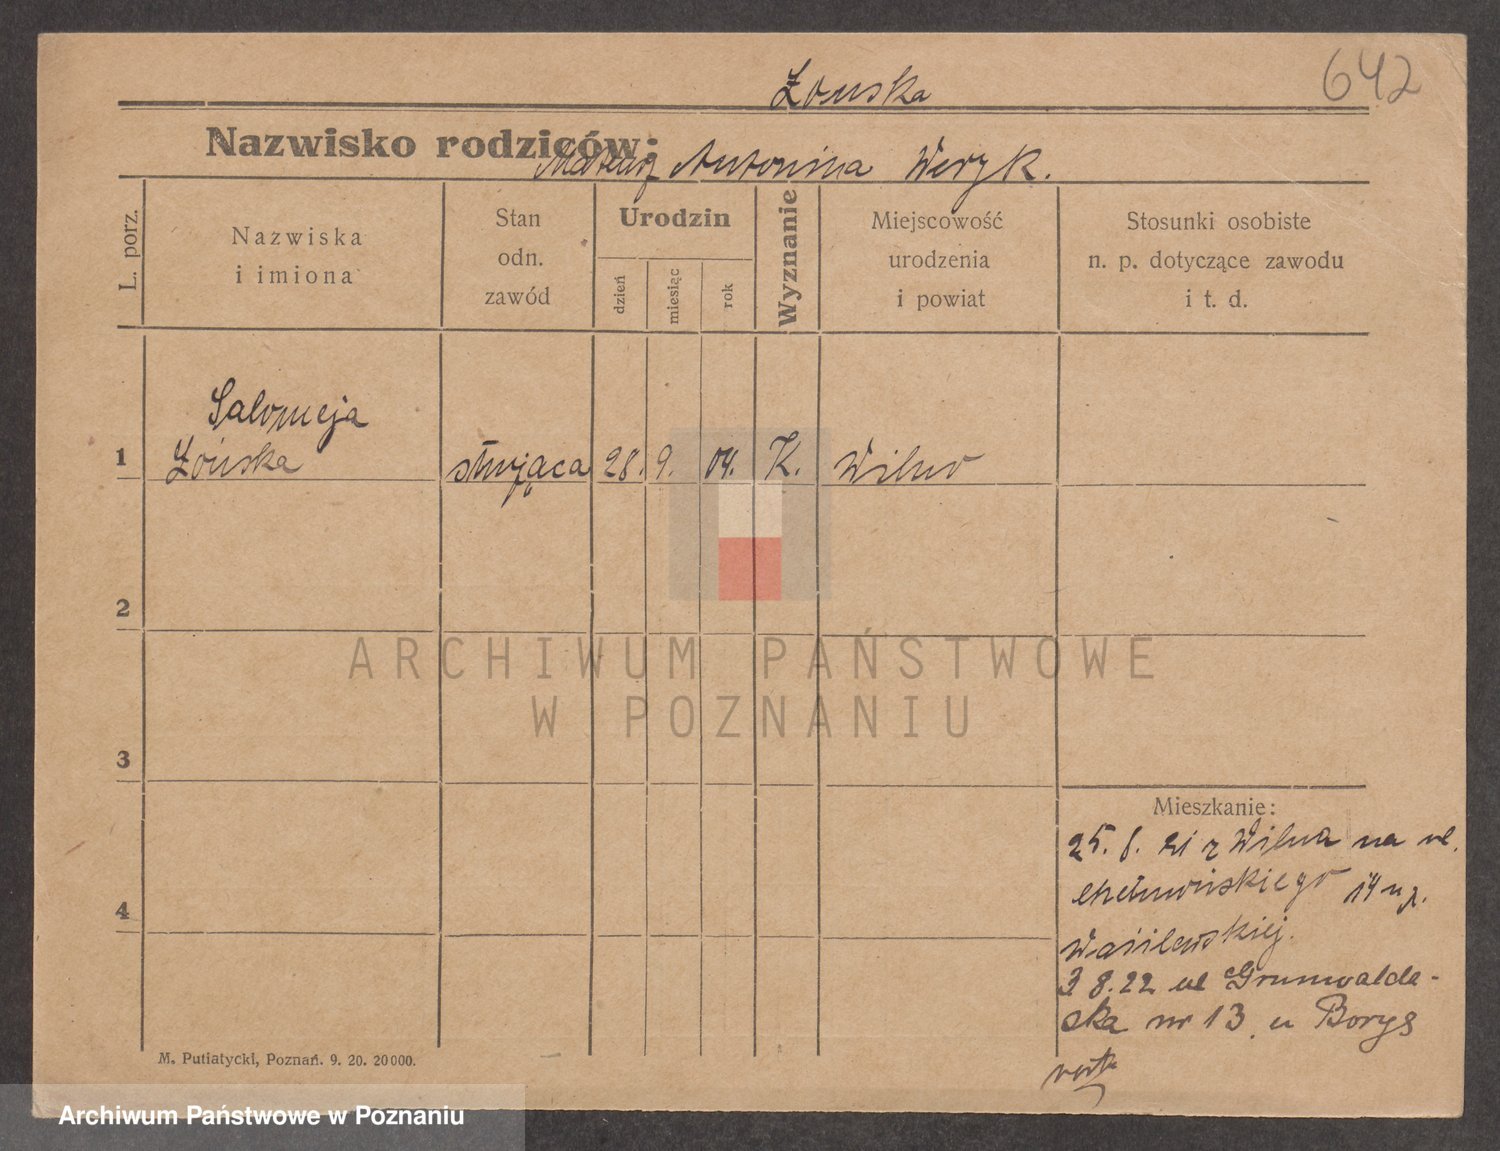 642
Żouska
Nazwisko rodziców:
Mateusz Antonina Weryk.
L. porz.
Nazwiska
i imiona
Stan
odn.
zawód
Urodzin
dzień
miesiąc
rok
Wyznanie
Miejscowość
urodzenia
i powiat
Stosunki osobiste
n. p. dotyczące zawodu
i t. d.
Salomeja
1 Żouska służąca 28. 9. 04. K. Wilno
2
3
4
Mieszkanie:
25. z Wilna na ul.
14
Wasilewskiej.
8.22 ul Grunwalda-
ska nr 13 u Borys
M. Putiatycki, Poznań. 9. 20. 20000.
ARCHIWUM PAŃSTWOWE
W POZNANIU
Archiwum Państwowe w Poznaniu